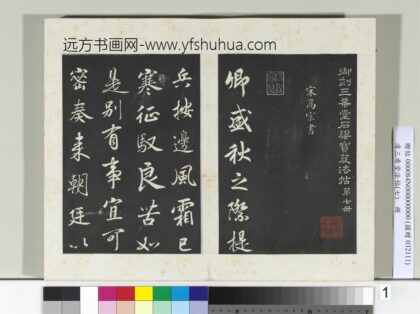 远方书画网-www.yfshuhua.com
御刻三希堂石渠寶笈法帖第七冊
宋高宗書
卿盛秋之際提
兵按邊風霜已
寒征馭良苦如
是别有事宜可
密奏来朝廷以
1